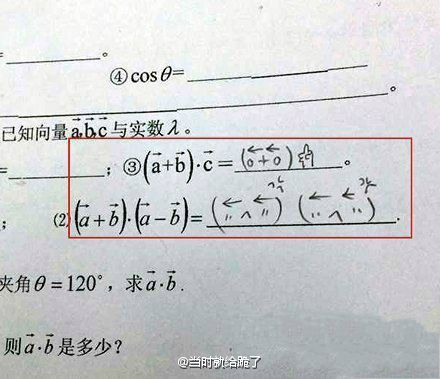 = ______ 。
④ cosθ= ______
______ 。
已知向量a⃗,b⃗,c⃗与实数λ。
= ______ ; ③(a⃗+b⃗)·c⃗= (o+o) 。
; (2)(a⃗+b⃗)·(a⃗-b⃗)= ______ .
夹角θ=120°，求a⃗·b⃗.
则a⃗·b⃗是多少?
@当时就给跪了